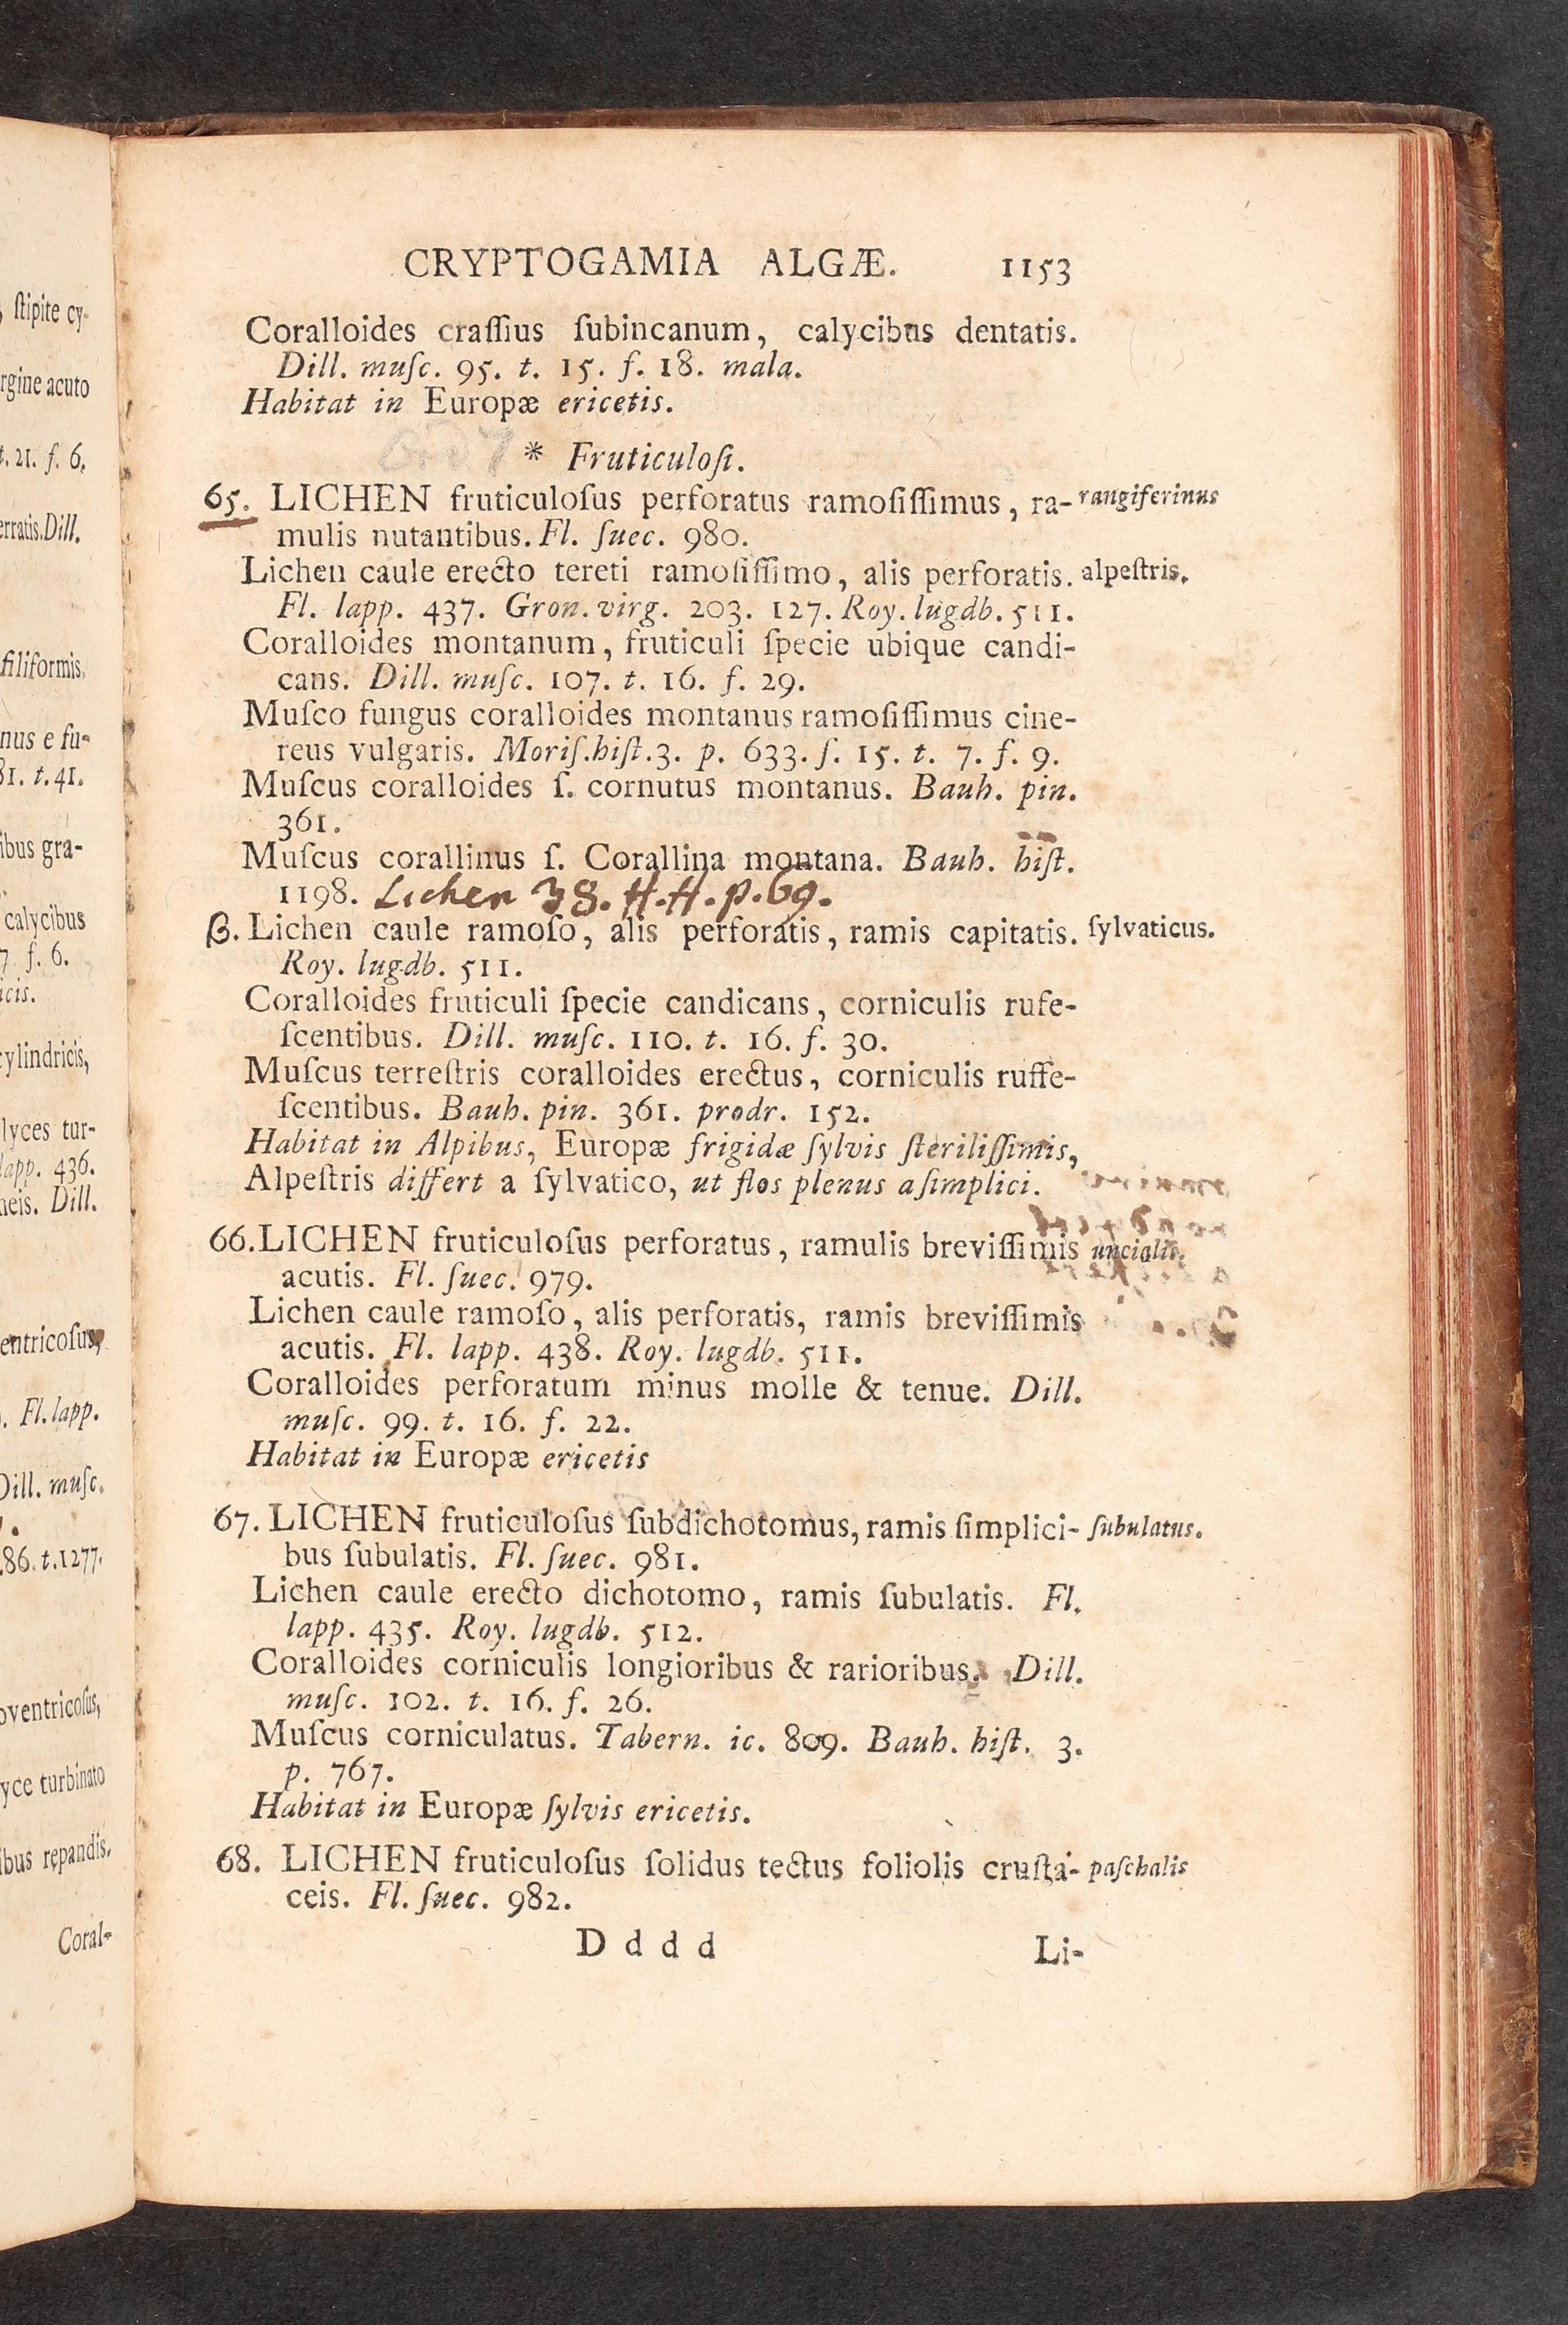 ſtipite cy-
rgine acuto
t. 21. f. 6.
erratis. Dill.
filiformis.
nus e fu-
81. t. 41.
ibus gra-
calycibus
7 f. 6.
icis.
cylindricis,
lyces tur-
lapp. 436.
neis. Dill.
entricoſus,
Fl. lapp.
Dill. muſc.
86. t. 1277.
oventricoſus,
yce turbinato
ibus repandis.
Coral-
CRYPTOGAMIA ALGÆ. 1153
Coralloides craſſius ſubincanum, calycibus dentatis.
Dill. muſc. 95. t. 15. f. 18. mala.
Habitat in Europæ ericetis.
* Fruticuloſi.
65. LICHEN fruticuloſus perforatus ramoſiſſimus, ra- rangiferinus
mulis nutantibus. Fl. ſuec. 980.
Lichen caule erecto tereti ramoſiſſimo, alis perforatis. alpeſtris.
Fl. lapp. 437. Gron. virg. 203. 127. Roy. lugdb. 511.
Coralloides montanum, fruticuli ſpecie ubique candi-
cans. Dill. muſc. 107. t. 16. f. 29.
Muſco fungus coralloides montanus ramoſiſſimus cine-
reus vulgaris. Moriſ. hiſt. 3. p. 633. ſ. 15. t. 7. f. 9.
Muſcus coralloides ſ. cornutus montanus. Bauh. pin.
361.
Muſcus corallinus ſ. Corallina montana. Bauh. hiſt.
1198. Lichen 38. H. H. p. 69.
β. Lichen caule ramoſo, alis perforatis, ramis capitatis. ſylvaticus.
Roy. lugdb. 511.
Coralloides fruticuli ſpecie candicans, corniculis rufe-
ſcentibus. Dill. muſc. 110. t. 16. f. 30.
Muſcus terreſtris coralloides erectus, corniculis ruffe-
ſcentibus. Bauh. pin. 361. prodr. 152.
Habitat in Alpibus, Europæ frigidæ ſylvis ſteriliſſimis,
Alpeſtris differt a ſylvatico, ut flos plenus a ſimplici.
66. LICHEN fruticuloſus perforatus, ramulis breviſſimis uncialis.
acutis. Fl. ſuec. 979.
Lichen caule ramoſo, alis perforatis, ramis breviſſimis
acutis. Fl. lapp. 438. Roy. lugdb. 511.
Coralloides perforatum minus molle & tenue. Dill.
muſc. 99. t. 16. f. 22.
Habitat in Europæ ericetis
67. LICHEN fruticuloſus ſubdichotomus, ramis ſimplici- ſubulatus.
bus ſubulatis. Fl. ſuec. 981.
Lichen caule erecto dichotomo, ramis ſubulatis. Fl.
lapp. 435. Roy. lugdb. 512.
Coralloides corniculis longioribus & rarioribus. Dill.
muſc. 102. t. 16. f. 26.
Muſcus corniculatus. Tabern. ic. 809. Bauh. hiſt. 3.
p. 767.
Habitat in Europæ ſylvis ericetis.
68. LICHEN fruticuloſus ſolidus tectus foliolis cruſta- paſchalis
ceis. Fl. ſuec. 982.
D d d d Li-